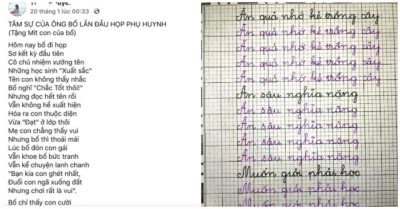 20 tháng 1 lúc 00:33
TÂM SỰ CỦA ÔNG BỐ LẦN ĐẦU HỌP PHỤ HUYNH
(Tặng Mít con của bố)
Hôm nay bố đi họp
Sơ kết kỳ đầu tiên
Cô chủ nhiệm xướng tên
Những học sinh "Xuất sắc"
Tên con không thấy nhắc
Bố nghĩ "Chắc Tốt thôi!"
Nhưng đọc hết tên rồi
Vẫn không hề xuất hiện
Hóa ra con thuộc diện
Vừa "Đạt" ở lớp thôi
Mẹ con chẳng thấy vui
Nhưng bố thì thoải mái
Lúc bố đón con gái
Vẫn khoe bố bức tranh
Vẫn kể chuyện lanh chanh
"Bạn kia con ghét nhất,
Đuổi con ngã xuống đất
Nhưng chơi rất là vui".
Bố chỉ thấy con cười
Ăn quả nhớ kẻ trồng cây
Ăn quả nhớ kẻ trồng cây
Ăn quả nhớ kẻ trồng cây
Ăn quả nhớ kẻ trồng cây
Ăn quả nhớ kẻ trồng cây
Ăn sâu nghĩa nặng
Ăn sâu nghĩa nặng
Ăn sâu nghĩa nặng
Ăn sâu nghĩa nặng
Ăn sâu nghĩa nặng
Muốn giỏi phải học
Muốn giỏi phải học
Muốn giỏi phải học